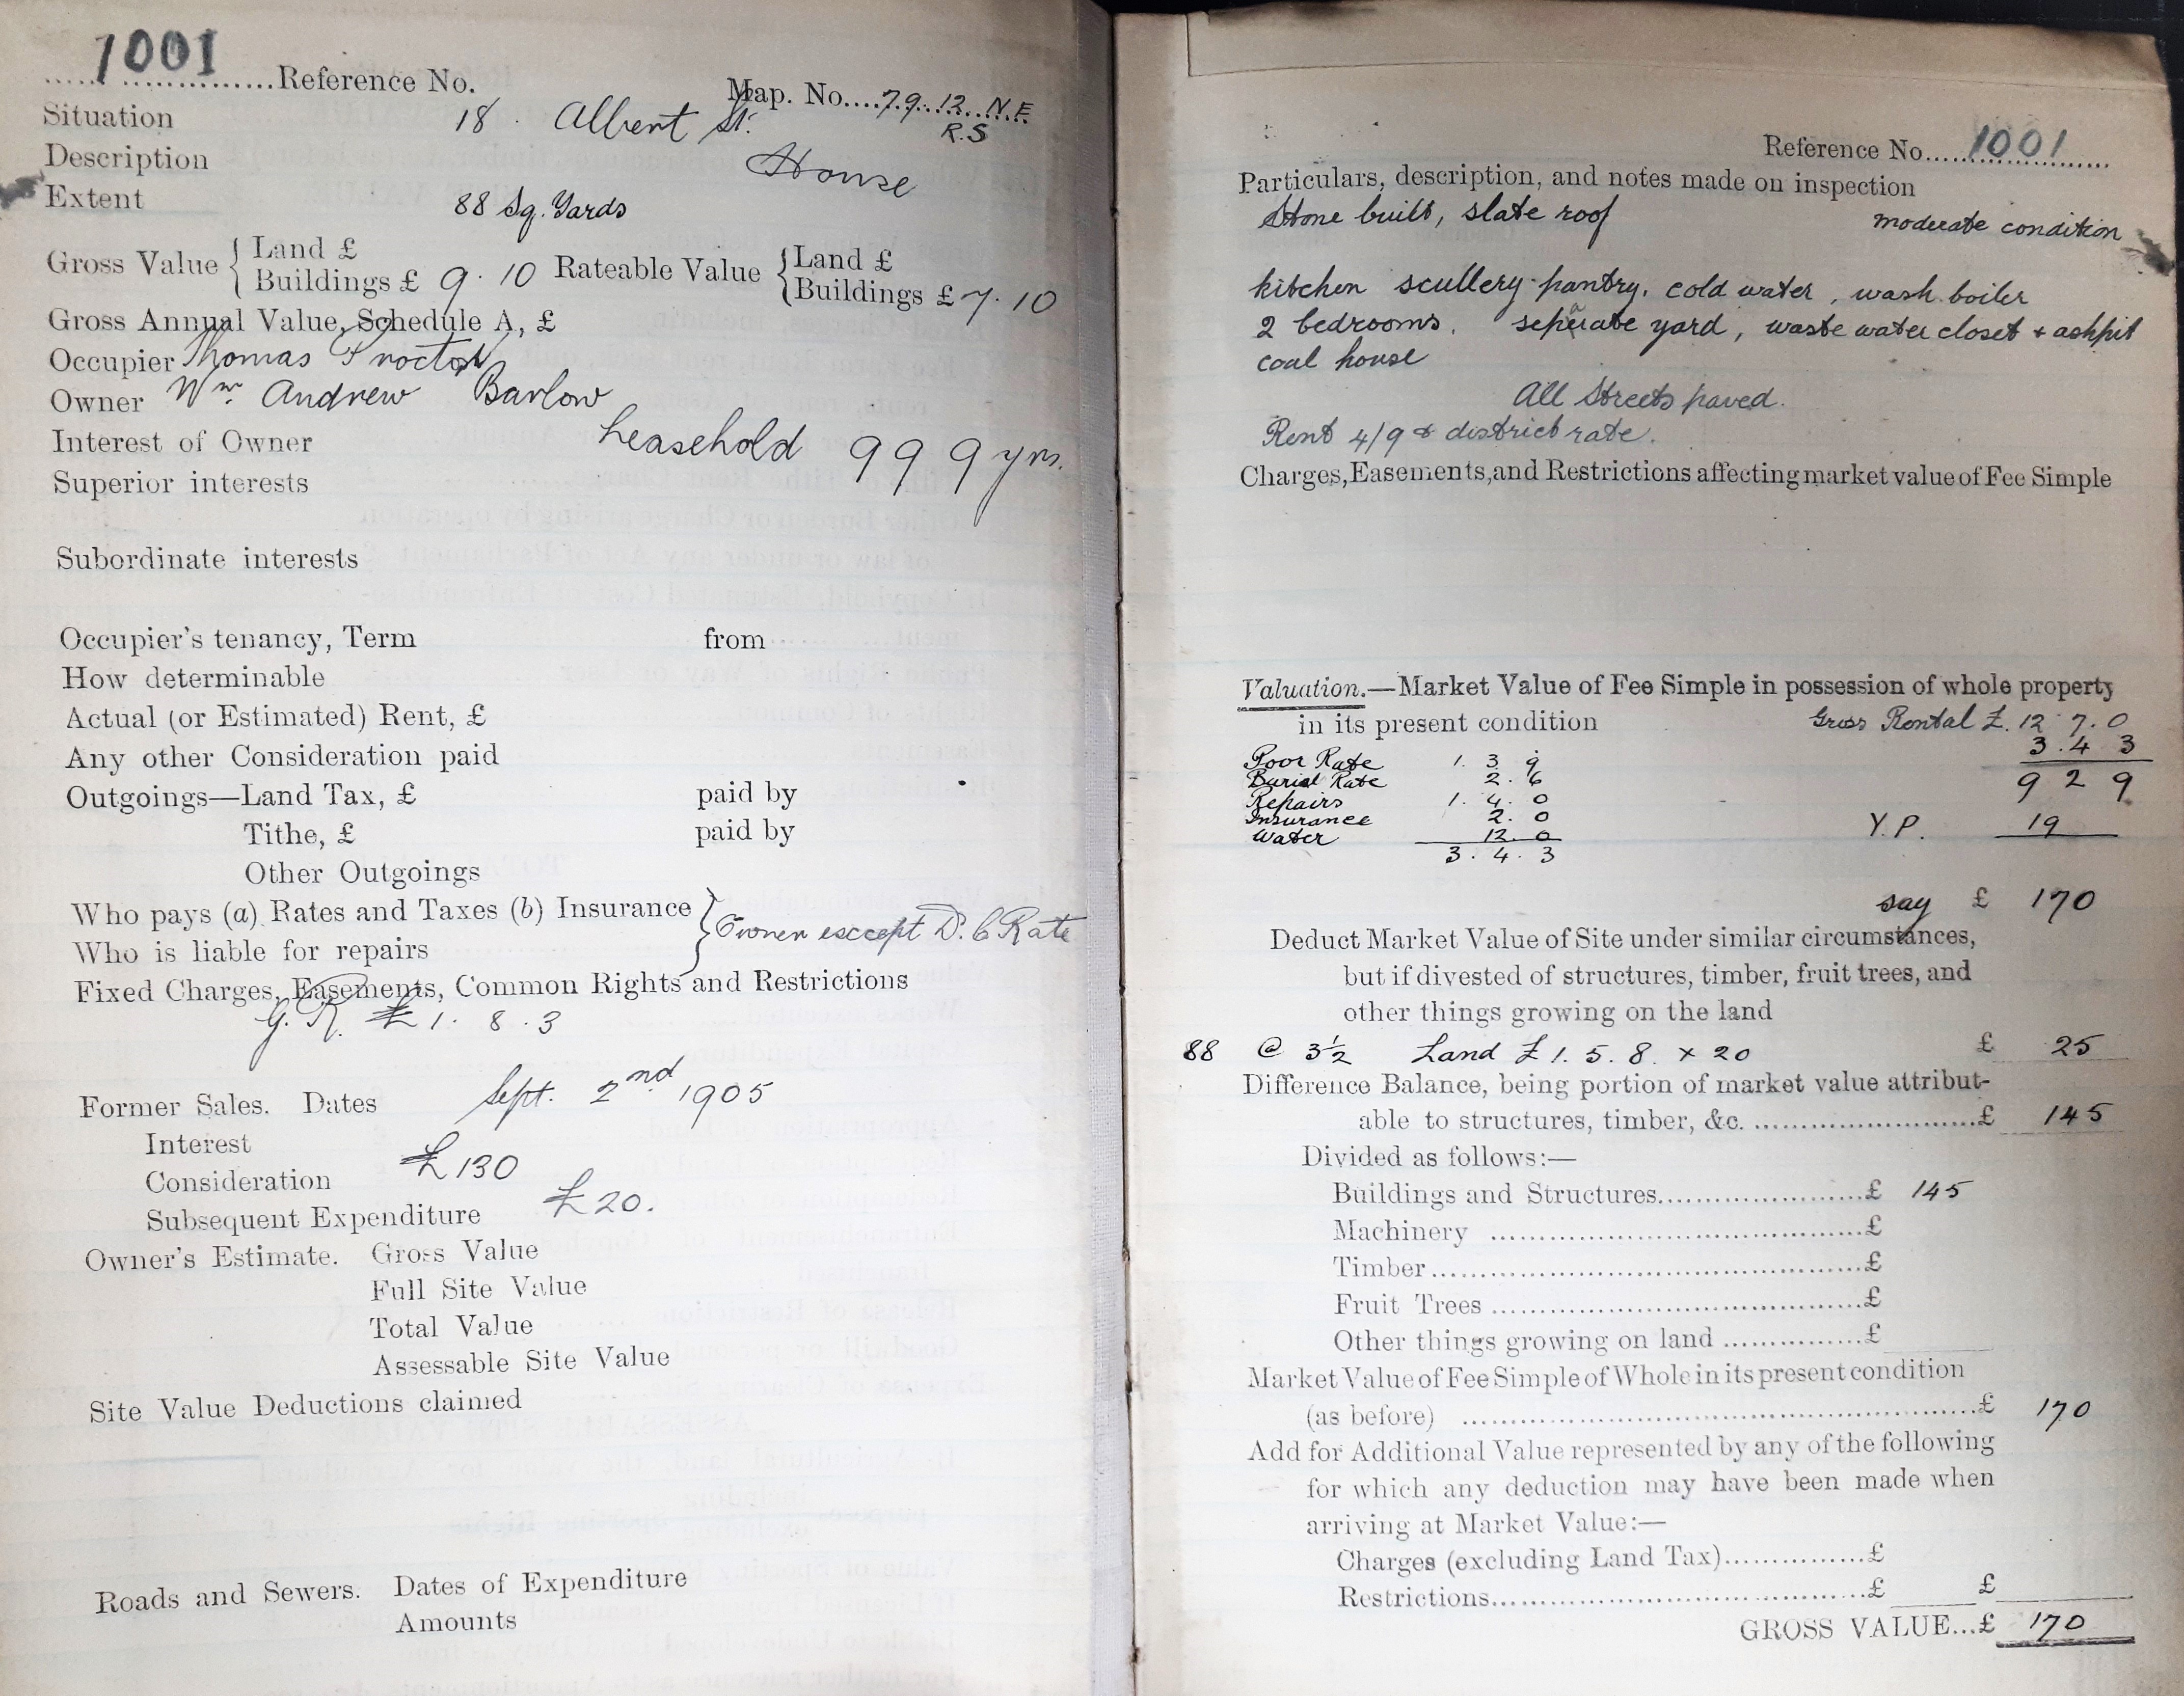 1001 Reference No.
Map. No....79.12. N.E
R.S
Situation 18. Albert St.
Description House
Extent 88 Sq. Yards
Gross Value { Land £
Buildings £ 9.10
Rateable Value { Land £
Buildings £ 7.10
Gross Annual Value, Schedule A, £
Occupier Thomas Proctor
Owner Wm. Andrew Barlow
Interest of Owner Leasehold 999 yrs.
Superior interests
Subordinate interests
Occupier's tenancy, Term from
How determinable
Actual (or Estimated) Rent, £
Any other Consideration paid
Outgoings—Land Tax, £ paid by
Tithe, £ paid by
Other Outgoings
Who pays (a) Rates and Taxes (b) Insurance } Owner except D. C Rate
Who is liable for repairs
Fixed Charges, Easements, Common Rights and Restrictions
G. R. £1. 8. 3
Former Sales. Dates Sept. 2nd 1905
Interest
Consideration £130
Subsequent Expenditure £20.
Owner's Estimate. Gross Value
Full Site Value
Total Value
Assessable Site Value
Site Value Deductions claimed
Roads and Sewers. Dates of Expenditure
Amounts
Reference No....1001
Particulars, description, and notes made on inspection
Stone built, slate roof moderate condition
kitchen scullery pantry, cold water, wash boiler
2 bedrooms. seperate yard, waste water closet + ashpit
coal house
All Streets paved.
Rent 4/9 & district rate.
Charges, Easements, and Restrictions affecting market value of Fee Simple
Valuation.—Market Value of Fee Simple in possession of whole property
in its present condition Gross Rental £. 12. 7. 0
3. 4 3
Poor Rate 1. 3 9
9 2 9
Burial Rate 2. 6
Repairs 1. 4. 0
Insurance 2. 0
Y.P. 19
Water 12. 0
3. 4. 3
say £ 170
Deduct Market Value of Site under similar circumstances,
but if divested of structures, timber, fruit trees, and
other things growing on the land
88 @ 3½ Land £1. 5. 8. x 20 £ 25
Difference Balance, being portion of market value attribut-
able to structures, timber, &c. ............£ 145
Divided as follows:—
Buildings and Structures............£ 145
Machinery ............£
Timber............£
Fruit Trees ............£
Other things growing on land ............£
Market Value of Fee Simple of Whole in its present condition
(as before) ............£ 170
Add for Additional Value represented by any of the following
for which any deduction may have been made when
arriving at Market Value:—
Charges (excluding Land Tax)............£
Restrictions............£ £
GROSS VALUE...£ 170